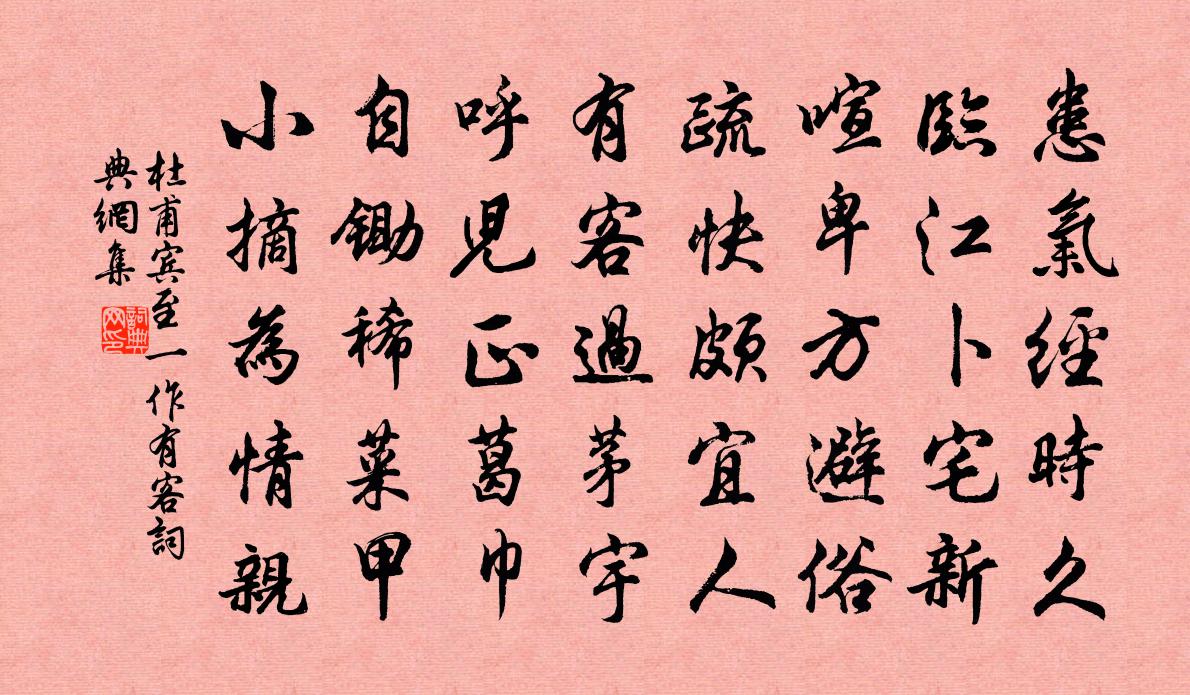 患氣經時久
臨江卜宅新
喧卑方避俗
疏快頗宜人
有客過茅宇
呼児正葛巾
自鋤稀菜甲
小摘為情親
杜甫賓至一作有客詞
典網集
詞典網印